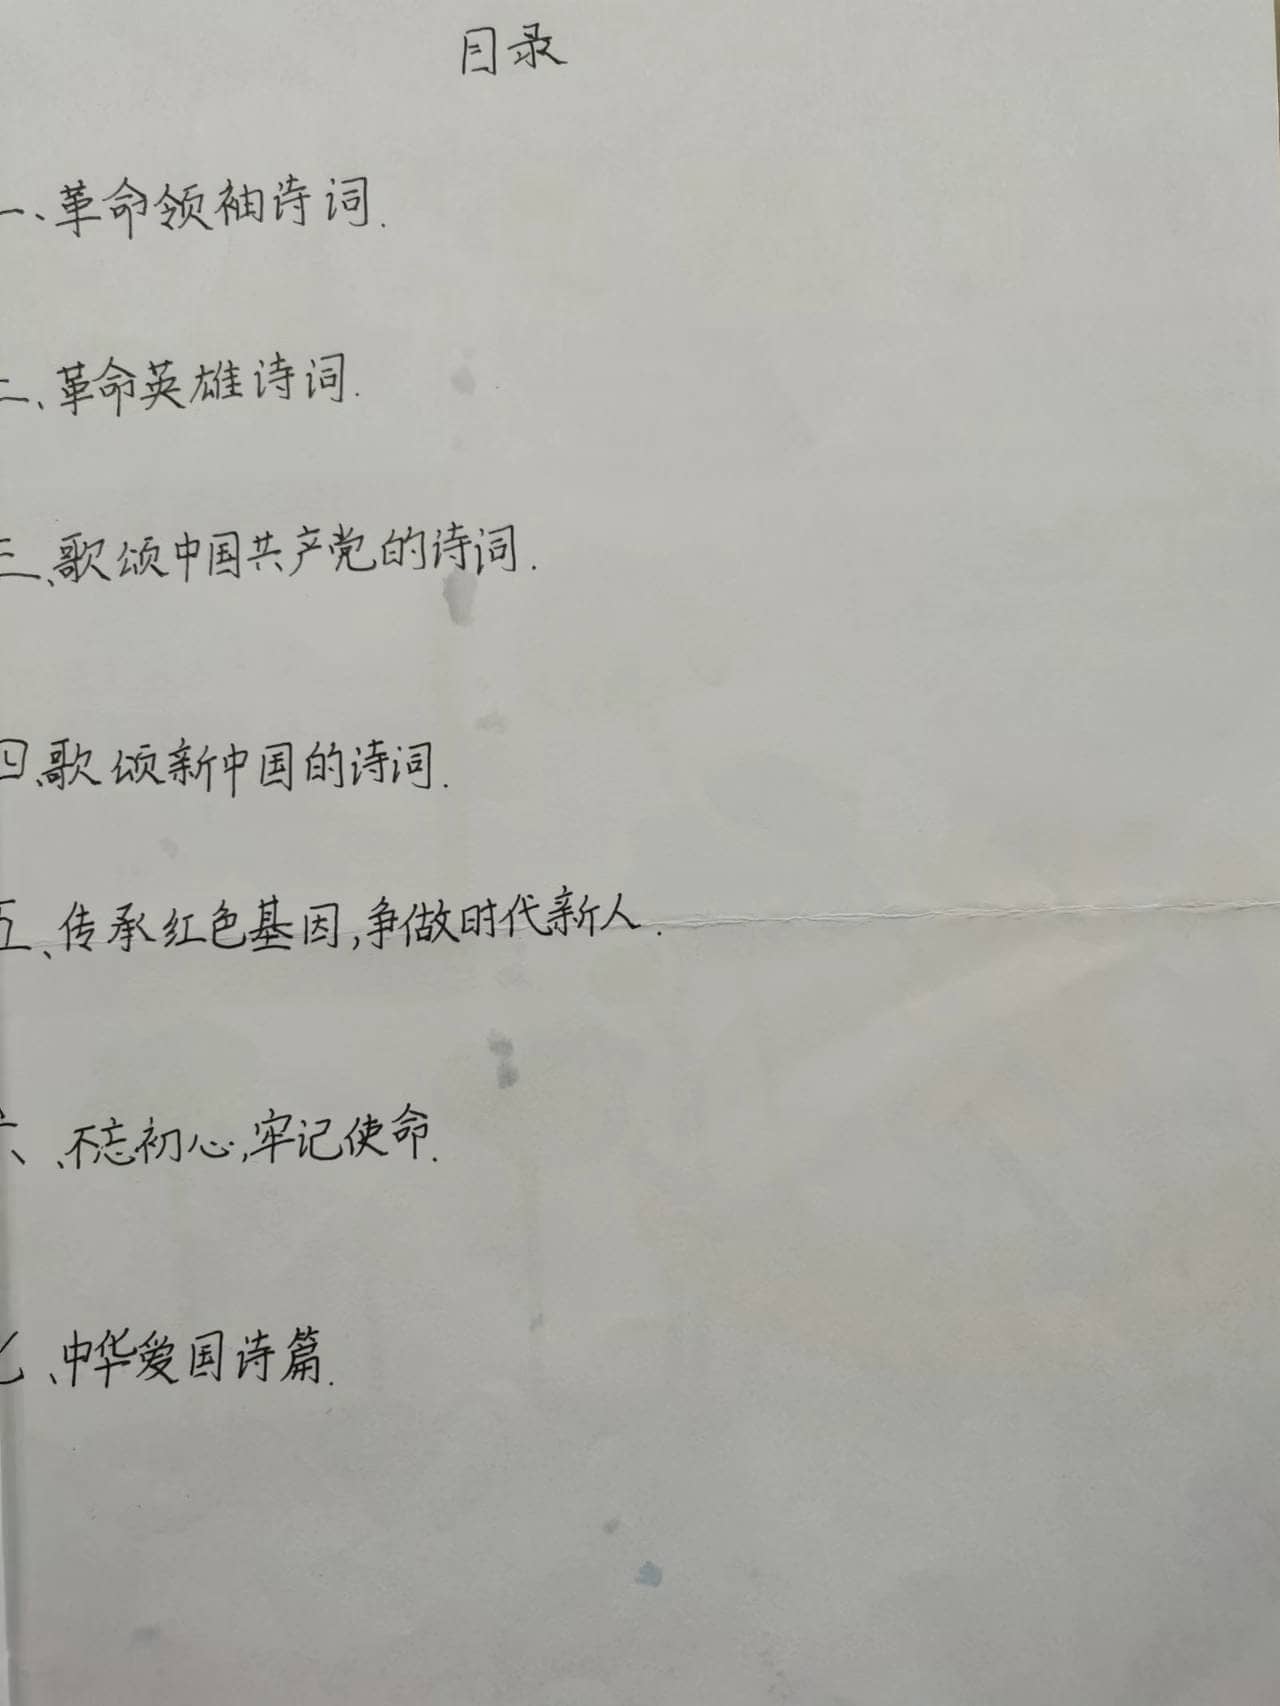 目录
一、革命领袖诗词.
二、革命英雄诗词.
三、歌颂中国共产党的诗词.
四、歌颂新中国的诗词.
五、传承红色基因,争做时代新人.
六、不忘初心,牢记使命.
七、中华爱国诗篇.